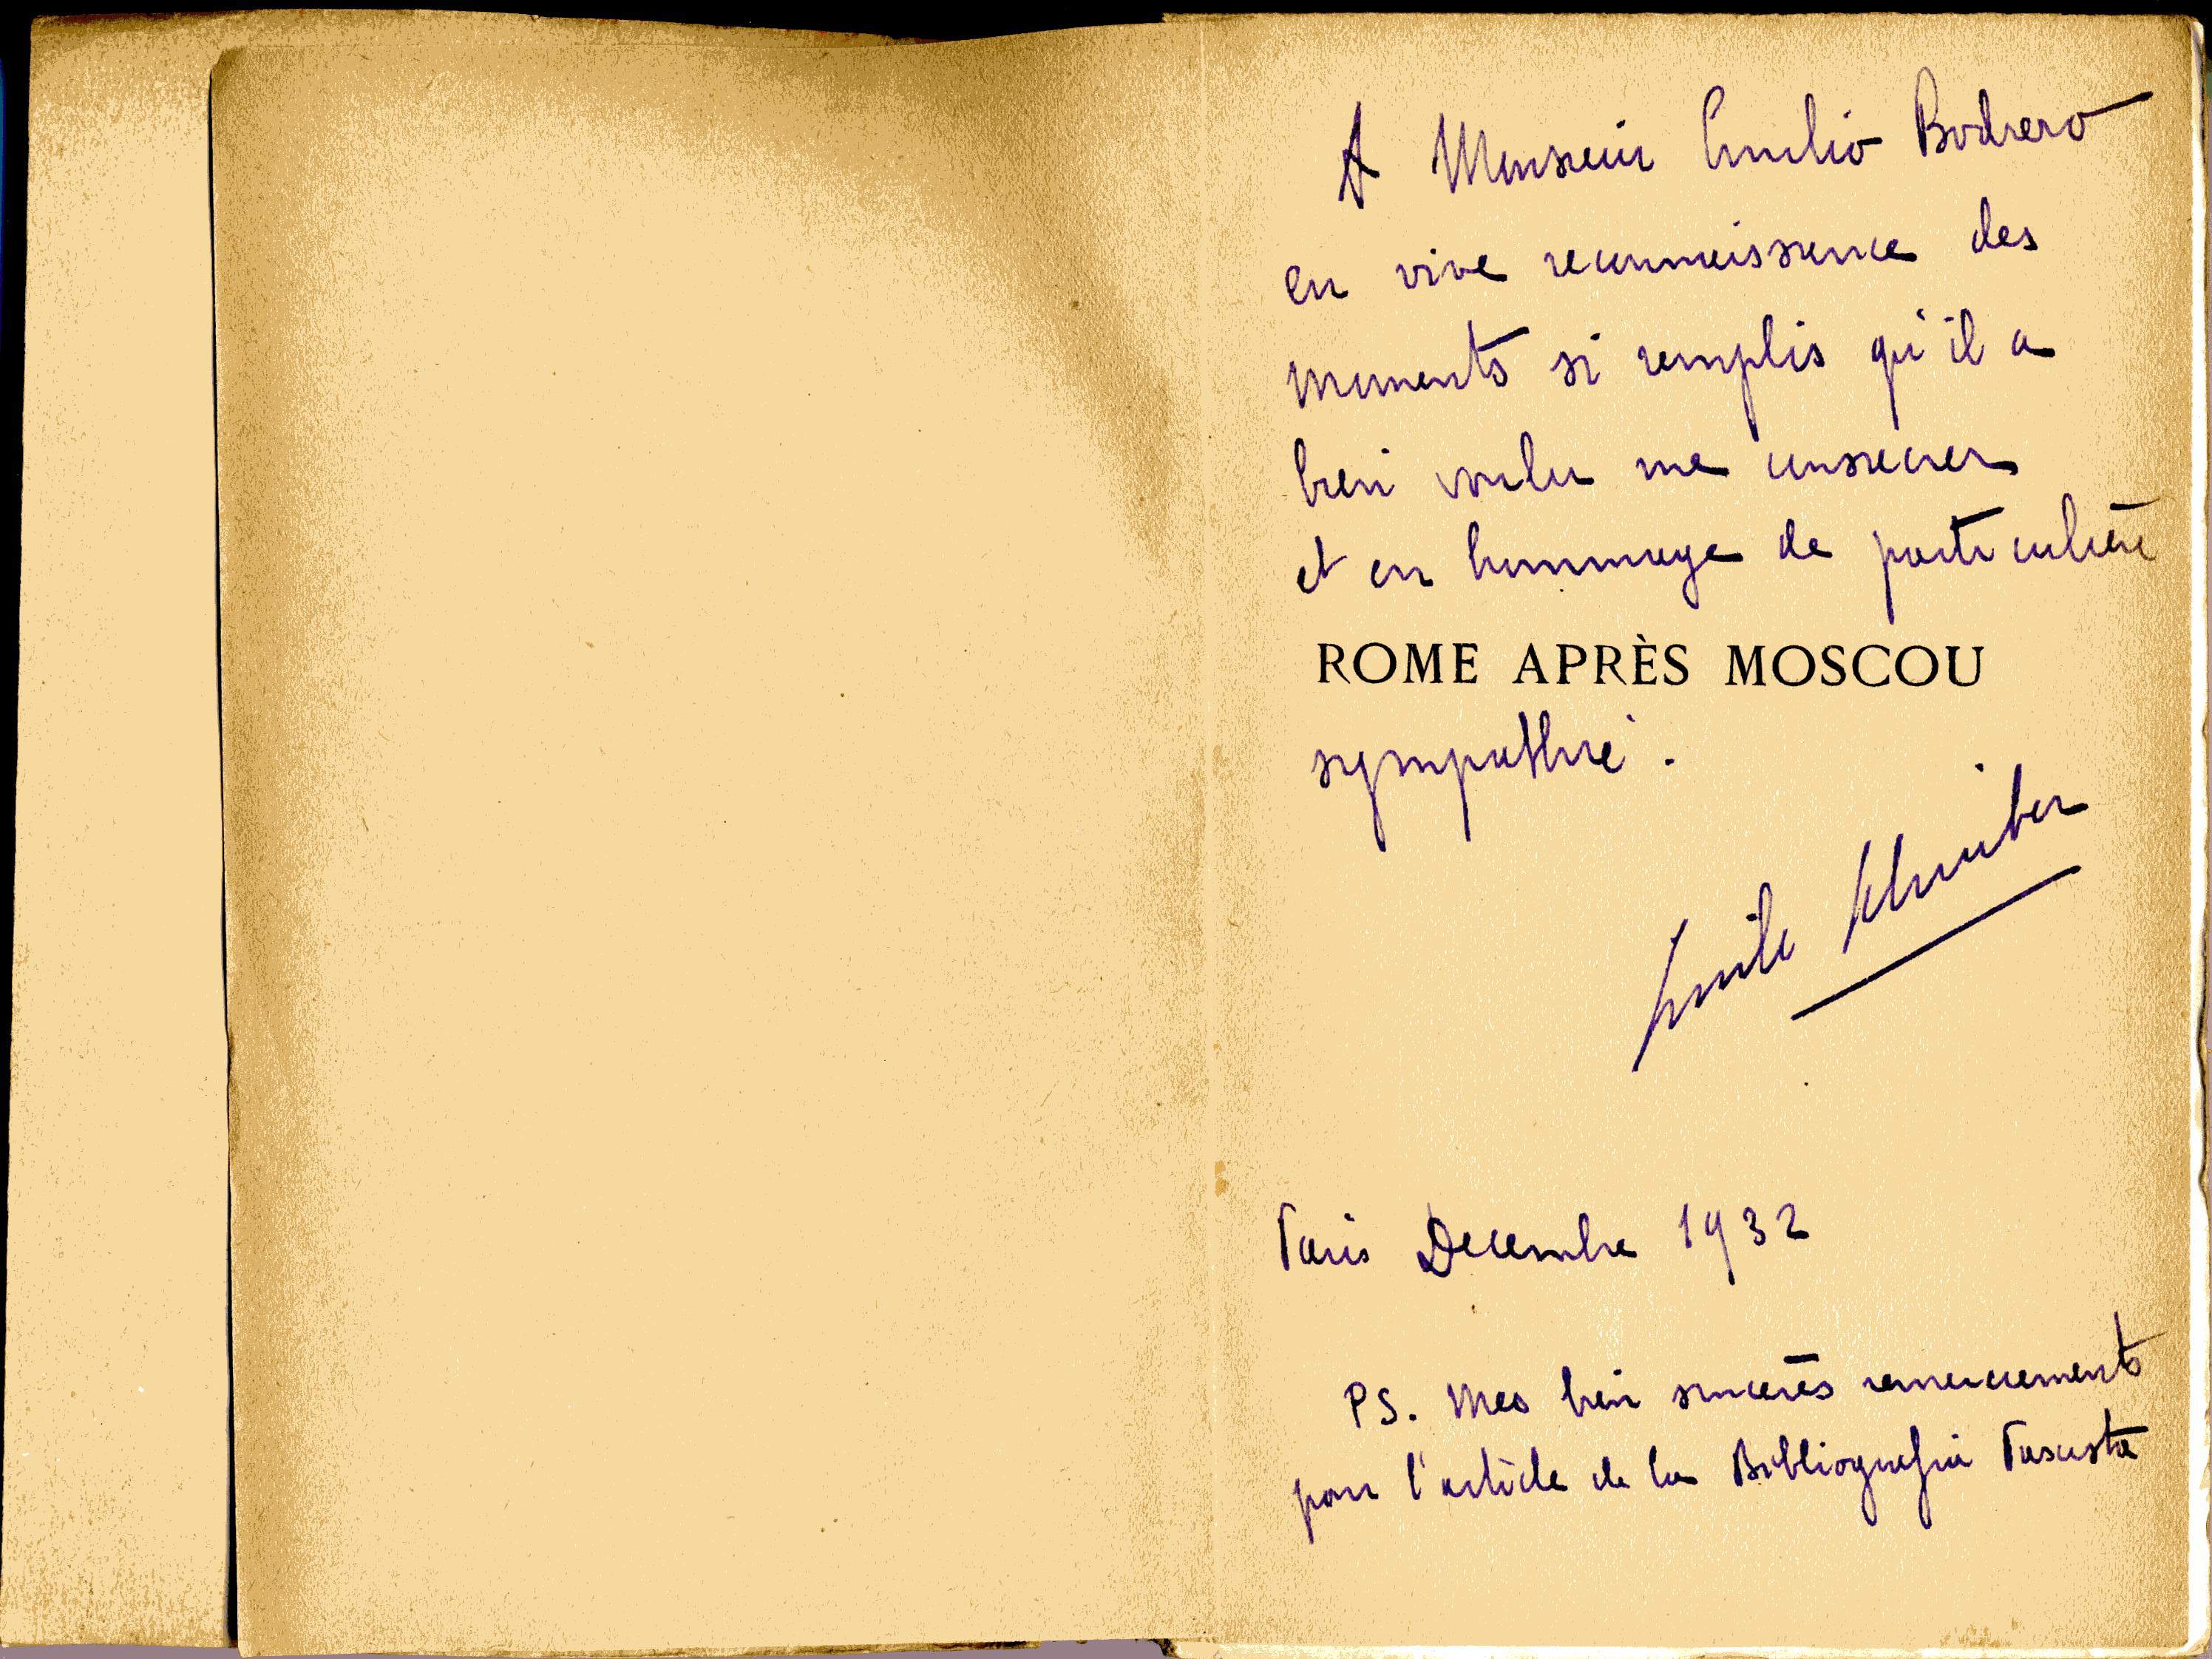 A Monsieur Emilio Bodrero
en vive reconnaissance des
moments si remplis qu'il a
bien voulu me consacrer
et en hommage de particulière
ROME APRÈS MOSCOU
sympathie.
Emile Schreiber
Paris Decembre 1932
PS. Mes bien sincères remerciements
pour l'article de la Bibliografia Fascista